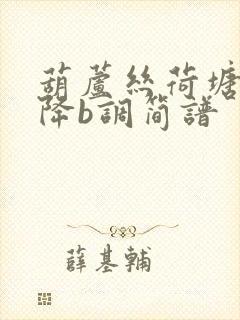 葫蘆絲荷塘
降b調简譜
薛基輔